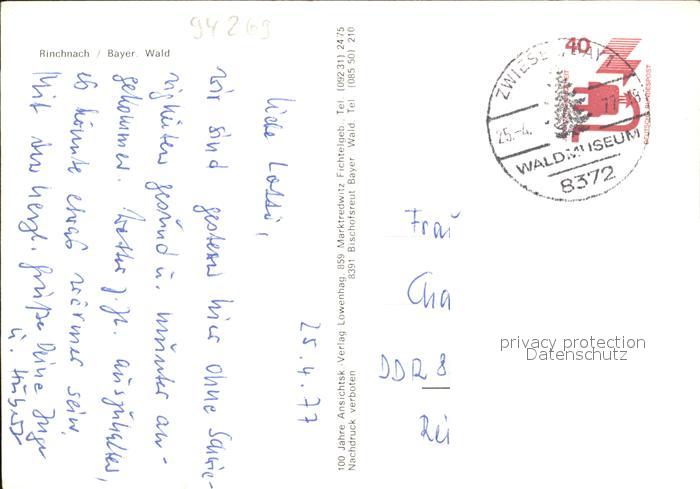 94269
Rinchnach / Bayer. Wald
25.4.77
wir sind gestern hier ohne Schwie-
rigkeiten gesund u. munter an-
gekommen. Wetter z. Zt. auszuhalten,
es könnte etwas wärmer sein.
Mit herzl. Grüße Deine Inge
u.
100 Jahre Ansichtsk.-Verlag Löwenhag, 859 Marktredwitz Fichtelgeb., Tel. (09231) 2475
8391 Bischofsreut Bayer. Wald Tel. (08550) 210
Nachdruck verboten
40
DEUTSCHE BUNDESPOST
ZWIESEL, BAY 1
25.-4.
WALDMUSEUM
8372
Frau
Cha
DDR 8
Rei
privacy protection
Datenschutz